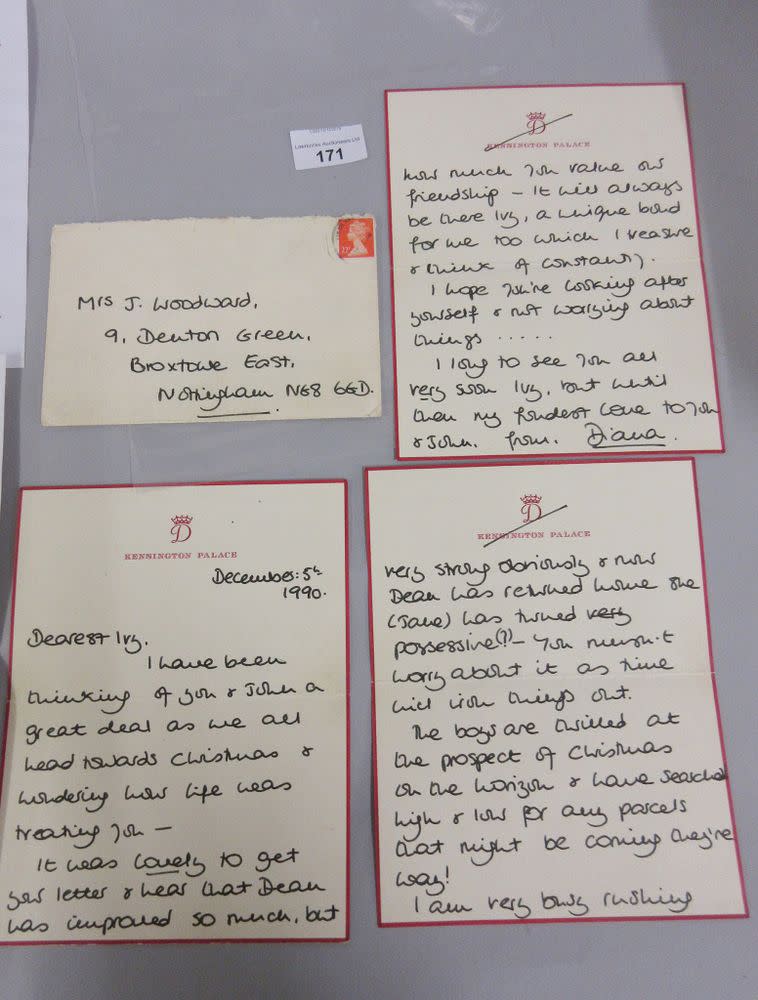 Lawrences Auctioneers Ltd
171
Mrs J. Woodward,
9, Denton Green,
Broxtowe East,
Nottingham NG8 6GD.
D
KENSINGTON PALACE
December: 5th
1990.
Dearest Ivy,
I have been
thinking of you & John a
great deal as we all
head towards Christmas &
wondering how life was
treating you —
It was lovely to get
your letter & hear that Dean
has improved so much, but
D
KENSINGTON PALACE
very strong obviously & now
Dean has returned home she
(Jane) has turned very
possessive(?) – You mustn't
worry about it as time
will iron things out.
The boys are thrilled at
the prospect of Christmas
on the horizon & have searched
high & low for any parcels
that might be coming they're
way!
I am very busy rushing
D
KENSINGTON PALACE
how much you value our
friendship – It will always
be there Ivy, a unique bond
for me too which I treasure
& think of constantly.
I hope you're looking after
yourself & not worrying about
things .....
I long to see you all
very soon Ivy, but until
then my fondest love to you
& John, from, Diana.